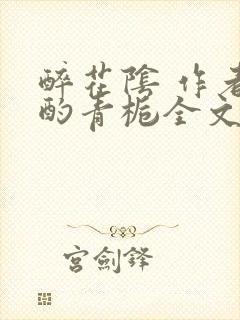 醉花陰 作者
酌青梔全文
宮劍鋒